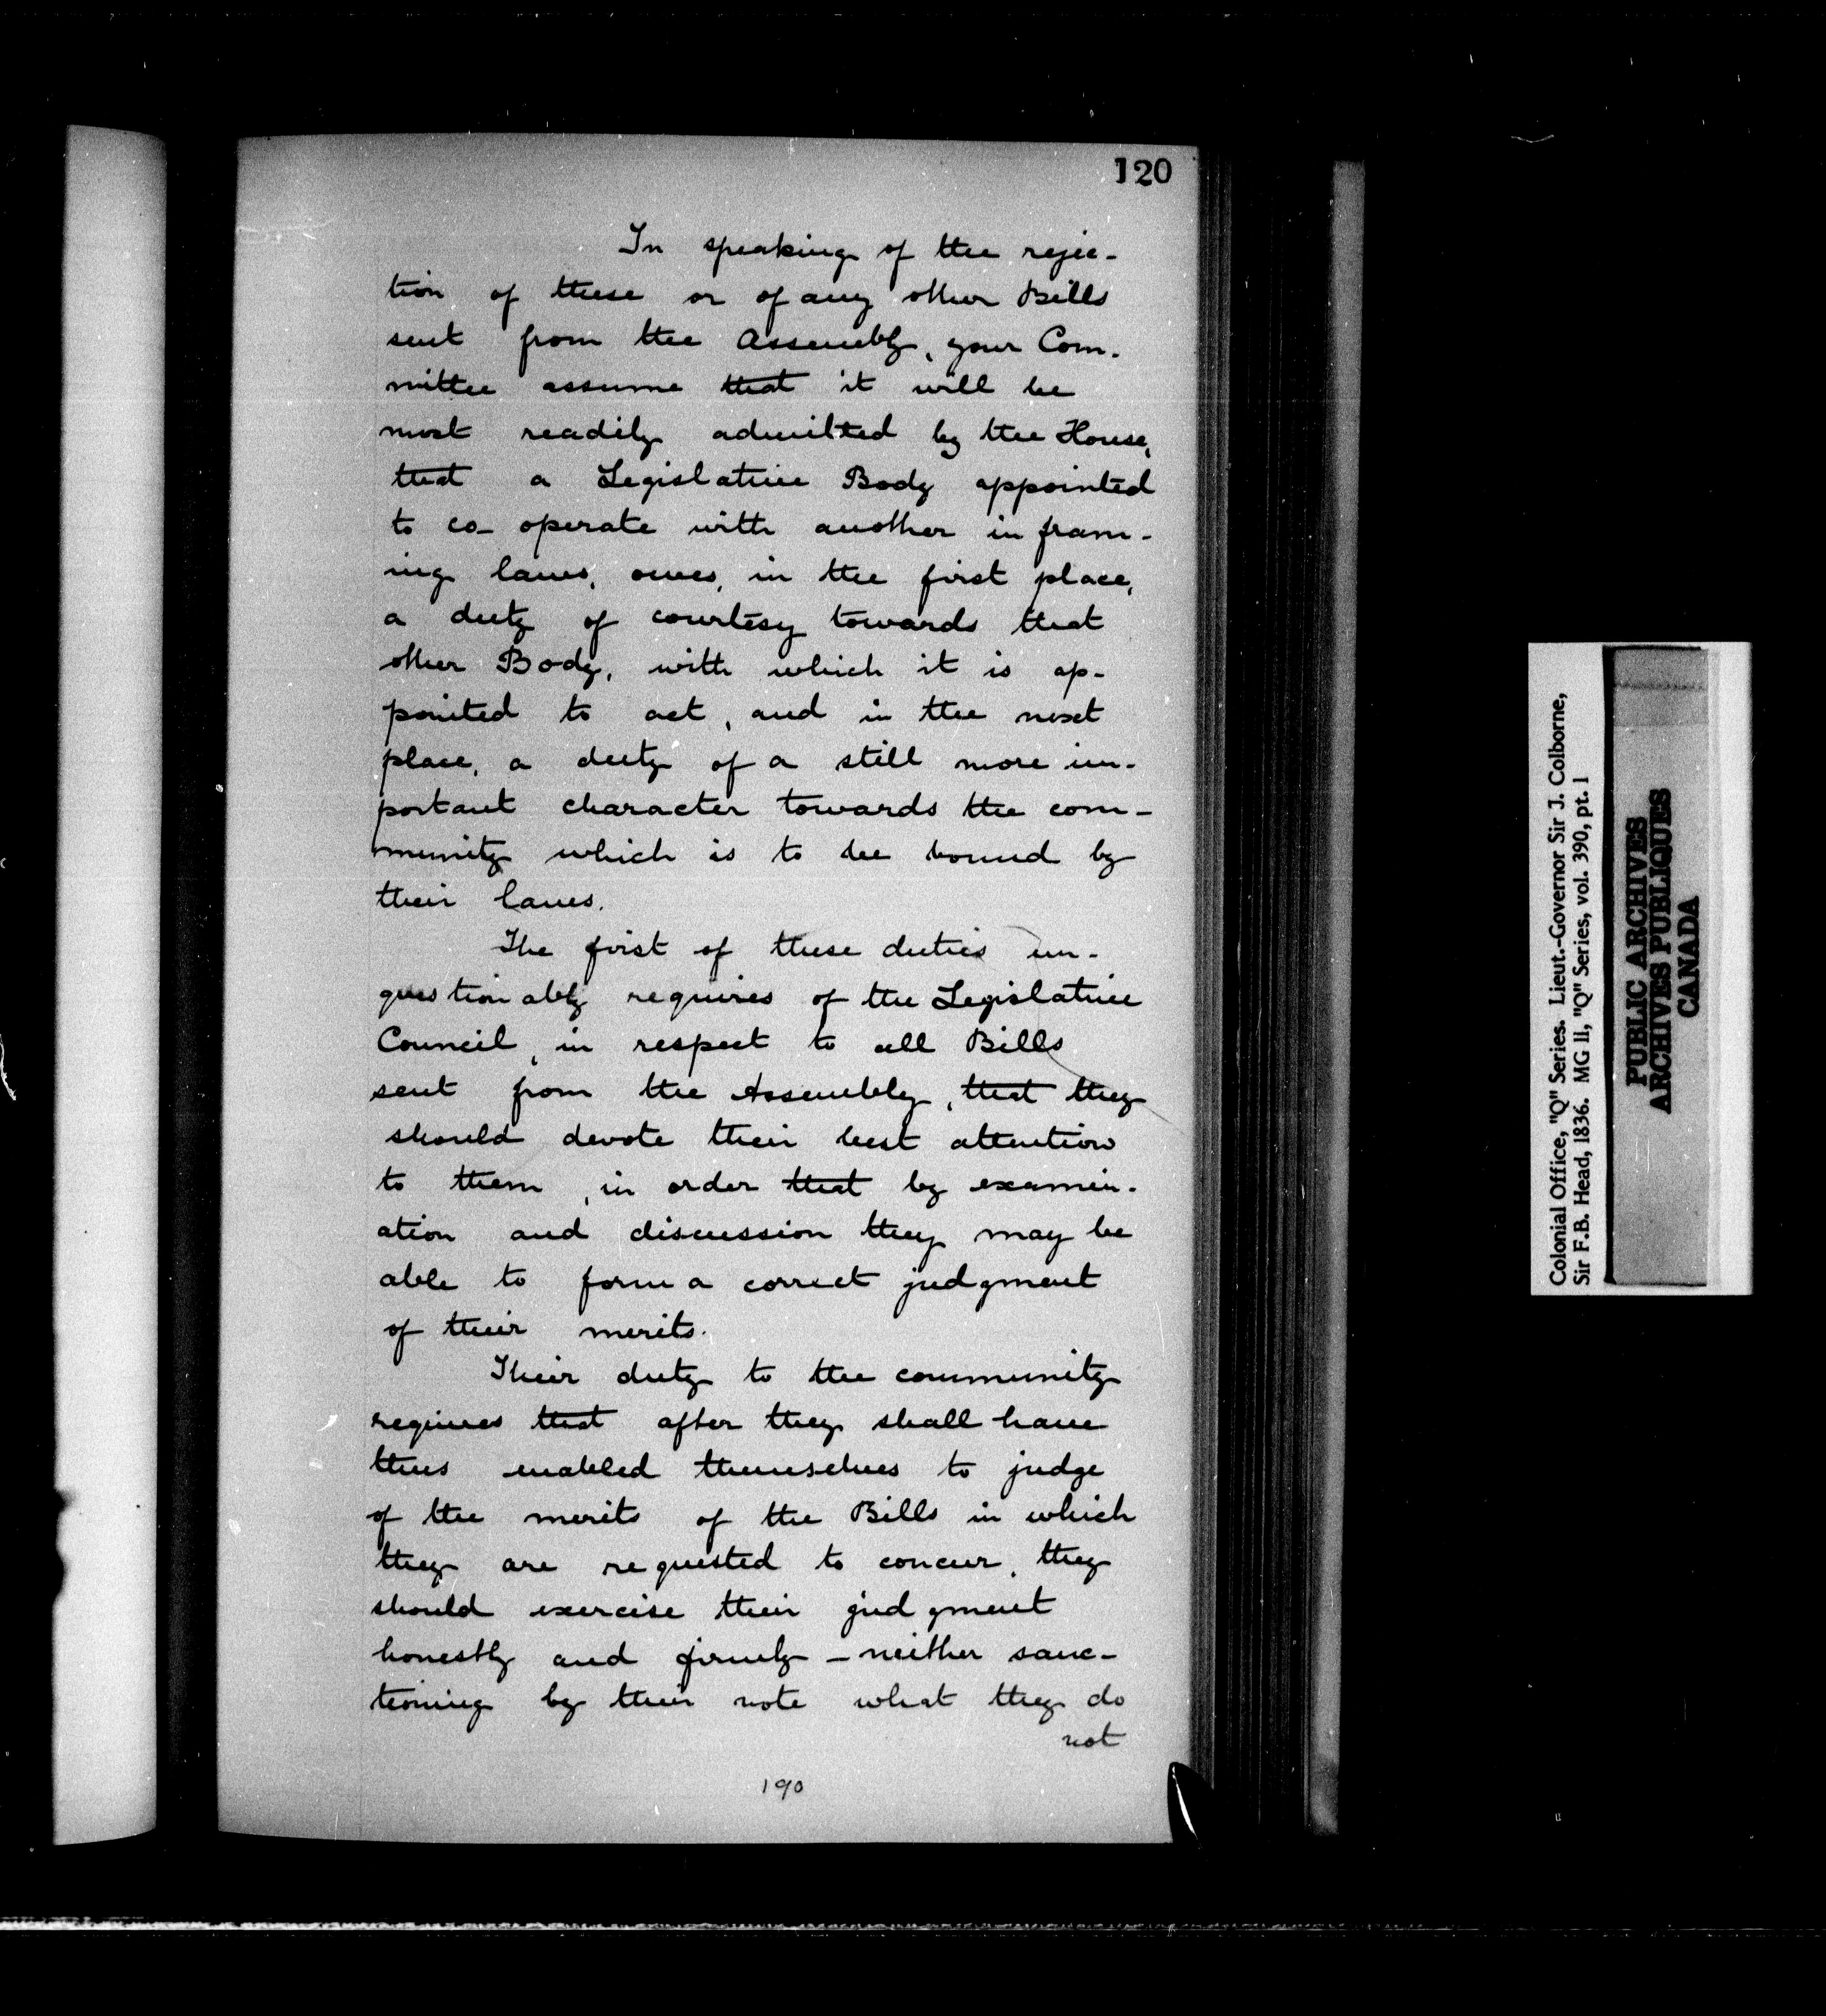 120
In speaking of the rejec-
tion of these or of any other Bills
sent from the Assembly, your Com-
mittee assume that it will be
most readily admitted by the House,
that a Legislative Body appointed
to co-operate with another in fram-
ing laws, owes, in the first place,
a duty of courtesy towards that
other Body, with which it is ap-
pointed to act, and in the next
place, a duty of a still more im-
portant character towards the com-
munity which is to be bound by
their laws.
The first of these duties un-
questionably requires of the Legislative
Council, in respect to all Bills
sent from the Assembly, that they
should devote their best attention
to them, in order that by examin-
ation and discussion they may be
able to form a correct judgment
of their merits.
Their duty to the community
requires that after they shall have
thus enabled themselves to judge
of the merits of the Bills in which
they are requested to concur, they
should exercise their judgment
honestly and firmly - neither sanc-
tioning by their vote what they do
not
190
Colonial Office, "Q" Series. Lieut.-Governor Sir J. Colborne,
Sir F.B. Head, 1836. MG 11, "Q" Series, vol. 390, pt. 1
PUBLIC ARCHIVES
ARCHIVES PUBLIQUES
CANADA